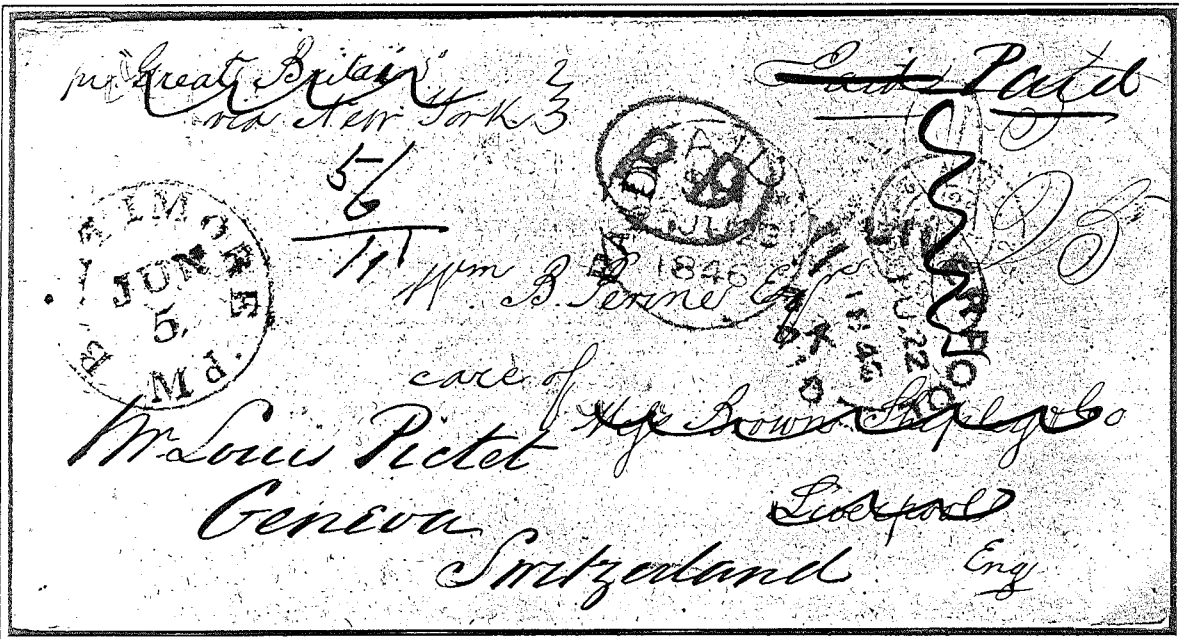 pr "Great Britain"
via New York
2
3
Paid Paid
5/
6
11
BALTIMORE
JUN
5
PM
PAID
1846
LIVERPOOL
JU 22
1846
PAID
25
Wm B. Perine Esqr
care of
Brown Shipley & Co
Mr Louis Pictet
Geneva
Liverpool
Switzerland
Eng